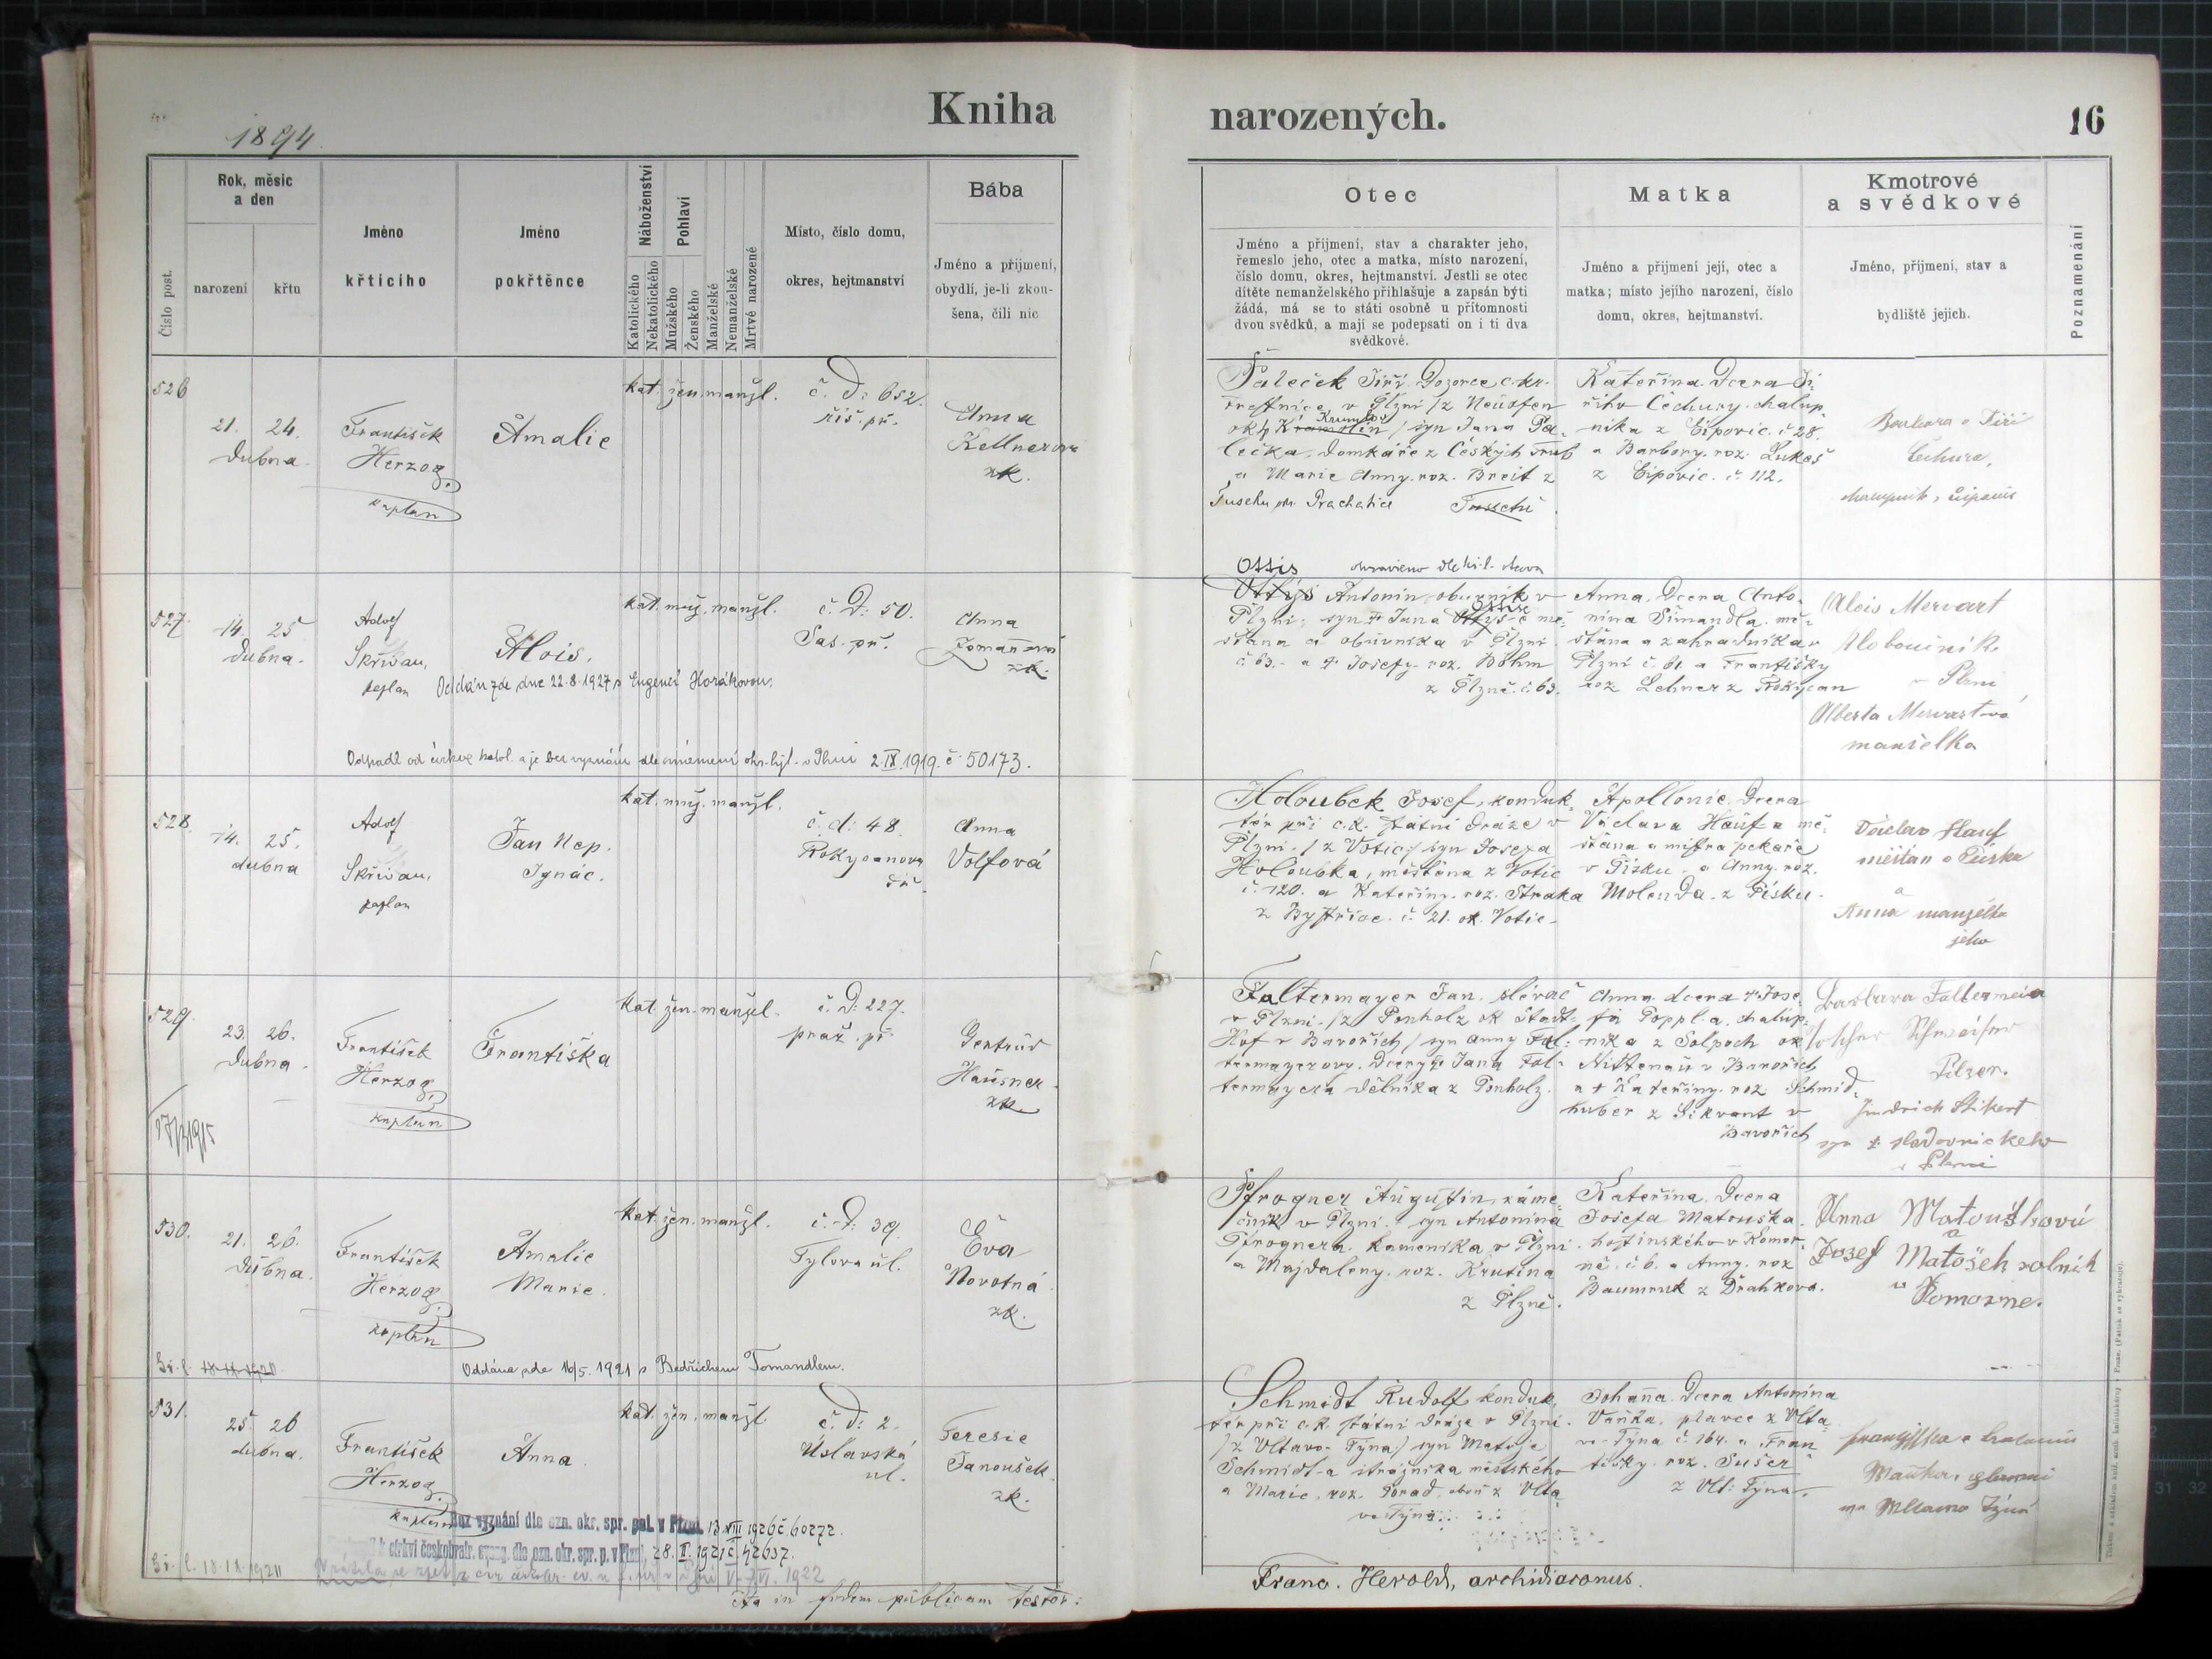 Kniha narozených.
16
1894
Číslo post.
Rok, měsíc a den
narození
křtu
Jméno křtícího
Jméno pokřtěnce
Náboženství
Katolického
Nekatolického
Pohlaví
Mužského
Ženského
Manželské
Nemanželské
Mrtvě narozené
Místo, číslo domu,
okres, hejtmanství
Bába
Jméno a příjmení,
obydlí, je-li zkou-
šena, čili nic
Otec
Jméno a příjmení, stav a charakter jeho,
řemeslo jeho, otec a matka, místo narození,
číslo domu, okres, hejtmanství. Jestli se otec
dítěte nemanželského přihlašuje a zapsán býti
žádá, má se to státi osobně u přítomnosti
dvou svědků, a mají se podepsati on i ti dva
svědkové.
Matka
Jméno a příjmení její, otec a
matka; místo jejího narození, číslo
domu, okres, hejtmanství.
Kmotrové
a svědkové
Jméno, příjmení, stav a
bydliště jejich.
Poznamenání
526
21. 24.
dubna.
František
Herzog
kaplan
Amalie
kat. žen. manžl.
č. D: 652.
řiš. př.
Anna
Kellnerova
zk.
Paleček Jiří. Dozorce c. kr.
trestnice v Plzni /z Neuofen
okr. Krumlov / syn Jana Pa-
lečka, domkáře z Českých Trub
a Marie Anny. roz. Breit z
Tuschu Prachatice
Kateřina. Dcera Ji-
řího Čechury. chalup-
níka z Ejpovic. č 28.
a Barbory. roz. Lukeš
z Ejpovic. č. 112.
Barbora a Jiří
Čechura,
527.
14. 25
dubna.
Adolf
Skřivan,
kaplan
Alois.
Oddán zde dne 22.8.1927 s Eugenií Horákovou.
kat. muž. manžl.
č. D: 50.
Sas. př.
Anna
zk.
Odpadl od církve katol. a je bez vyznání dle oznámení okr. hejt. v Plzni 2.IX.1919. č 50173.
Ottis
Antonín, obuvník v
Plzni; syn † Jana Ottise mě-
šťana a obuvníka v Plzni.
č 63. a † Josefy. roz. Böhm
z Plzně. č 63.
Anna. Dcera Anto-
nína Šimandla. mě-
šťana a zahradníka v
Plzni č. 61. a Františky
roz Lehner z Rokycan
Alois Mervart
kloboučník
v Plzni
Alberta Mervartová
manželka
528.
14. 25.
dubna
Adolf
Skřivan,
kaplan
Jan Nep.
Ignác.
kat. muž. manžl.
č. d: 48.
Rokycanova
tř.
Anna
Volfová
Holoubek Josef, konduk-
tér při c. k. státní dráze v
Plzni. /z Votic/ syn Josefa
Holoubka, měšťana z Votic
č. 120. a Kateřiny. roz. Straka
z Bystřice. č. 21. ok. Votic.
Apollonie. Dcera
Václava Haufa mě-
šťana a mistra pekaře
v Písku. a Anny. roz.
Molenda. z Písku.
Václav Hauf
měšťan z Písku
a
Anna manželka
jeho
529.
23. 26.
dubna.
František
Herzog
kaplan
Františka
kat. žen. manžel.
č. D: 227.
praž. př.
Gertrud
Hausner.
zk
Faltermayer Jan. slévač
v Plzni. /z Ponholz ok Stadt-
Hof v Bavořích / syn Anny Fal-
termayerovy. Dcery † Jana Fal-
termayera dělníka z Ponholz.
Anna. dcera † Jose-
fa Poppla. chalup-
níka z Solpach ok
Nittenau v Bavořích
a † Kateřiny. roz. Schmid-
huber z v
Bavořích
Barbara Faltermeier
Pilzen.
Jindrich
syn sladovnickeho
v Plzni
530.
21. 26.
dubna.
František
Herzog
kaplan
Amalie
Marie.
kat. žen. manžl.
č. D: 39.
Tylova ul.
Eva
Novotná
zk.
Oddána zde 16/5. 1921 s Bedřichem Tomandlem.
Pfrogner Augustin, káme-
čník v Plzni. syn Antonína
Pfrognera. Kameníka v Plzni
a Majdaleny. roz. Krutina
z Plzně.
Kateřina. Dcera
Josefa Matouška.
hostinského v Komor-
ně. č 6. a Anny. roz
Baumruk z Drahkova.
Anna Matoušková
a
Josef Matošek rolník
w Komorne.
531.
25 26
dubna.
František
Herzog
kaplan
Anna
kat. žen. manžl.
č. d: 2.
Úslavská
ul.
Teresie
Janoušek.
zk.
Bez vyznání dle ozn. okr. spr. pol. v Plzni
k církvi českobratr. evang. dle ozn. okr. spr. p. v Plzni, 28. II. 1921 č. 42637.
Schmidt Rudolf konduk-
tér při c. k. státní dráze v Plzni.
/z Vltavo-Týna/ syn Matěje
Schmidt-a strážníka městského
a Marie. roz. Porad. oboú z Vlta-
vo-Týna.
Johanna. Dcera Antonína
Vaňka. plavce z Vlta-
vo-Týna č. 164. a Fran-
tišky. roz. Sušer
z Vlt: Týna.
Ita in fidem publicam testor:
Franc. Herold, archidiaconus.